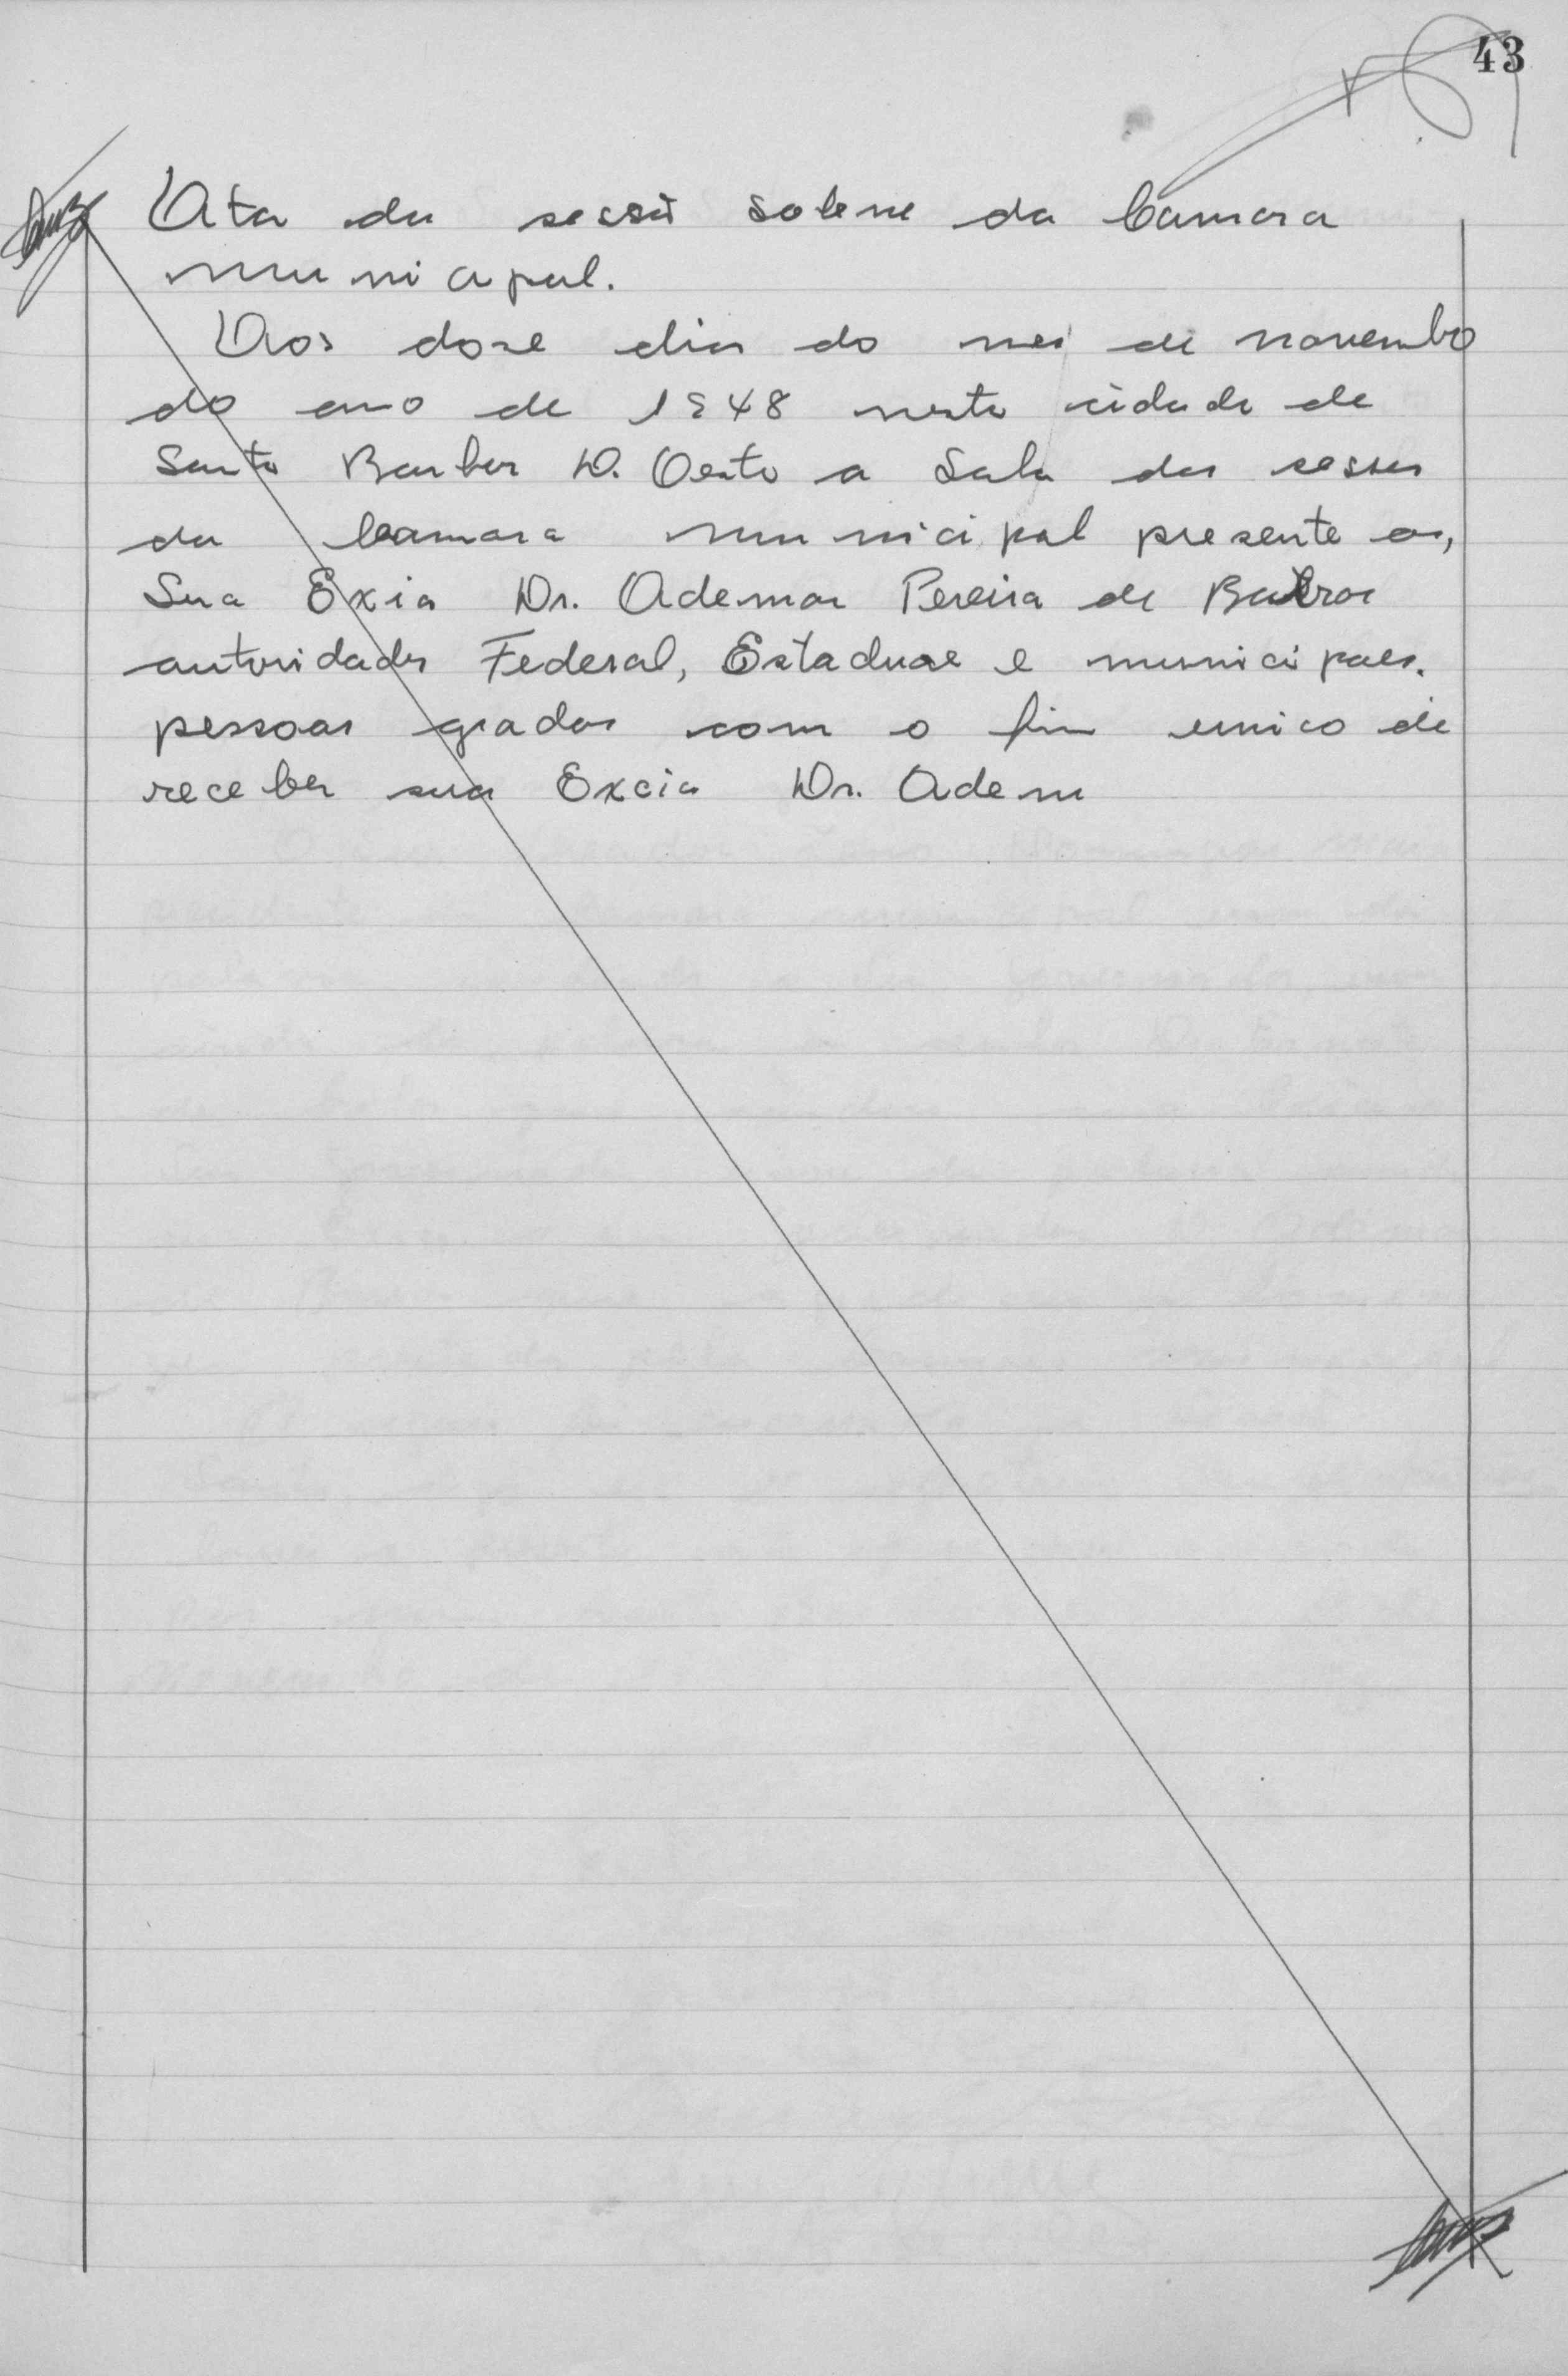 43
Ata da sessão solene da Camara
municipal.
Aos doze dias do mes de novembro
do ano de 1948 nesta cidade de
Santa Barbara D. Oeste a Sala das sessões
da Camara municipal presente os,
Sua Exia Dr. Ademar Pereira de Barros
autoridades Federal, Estadual e municipaes.
pessoas gradas com o fim unico de
receber sua Excia Dr. Adem